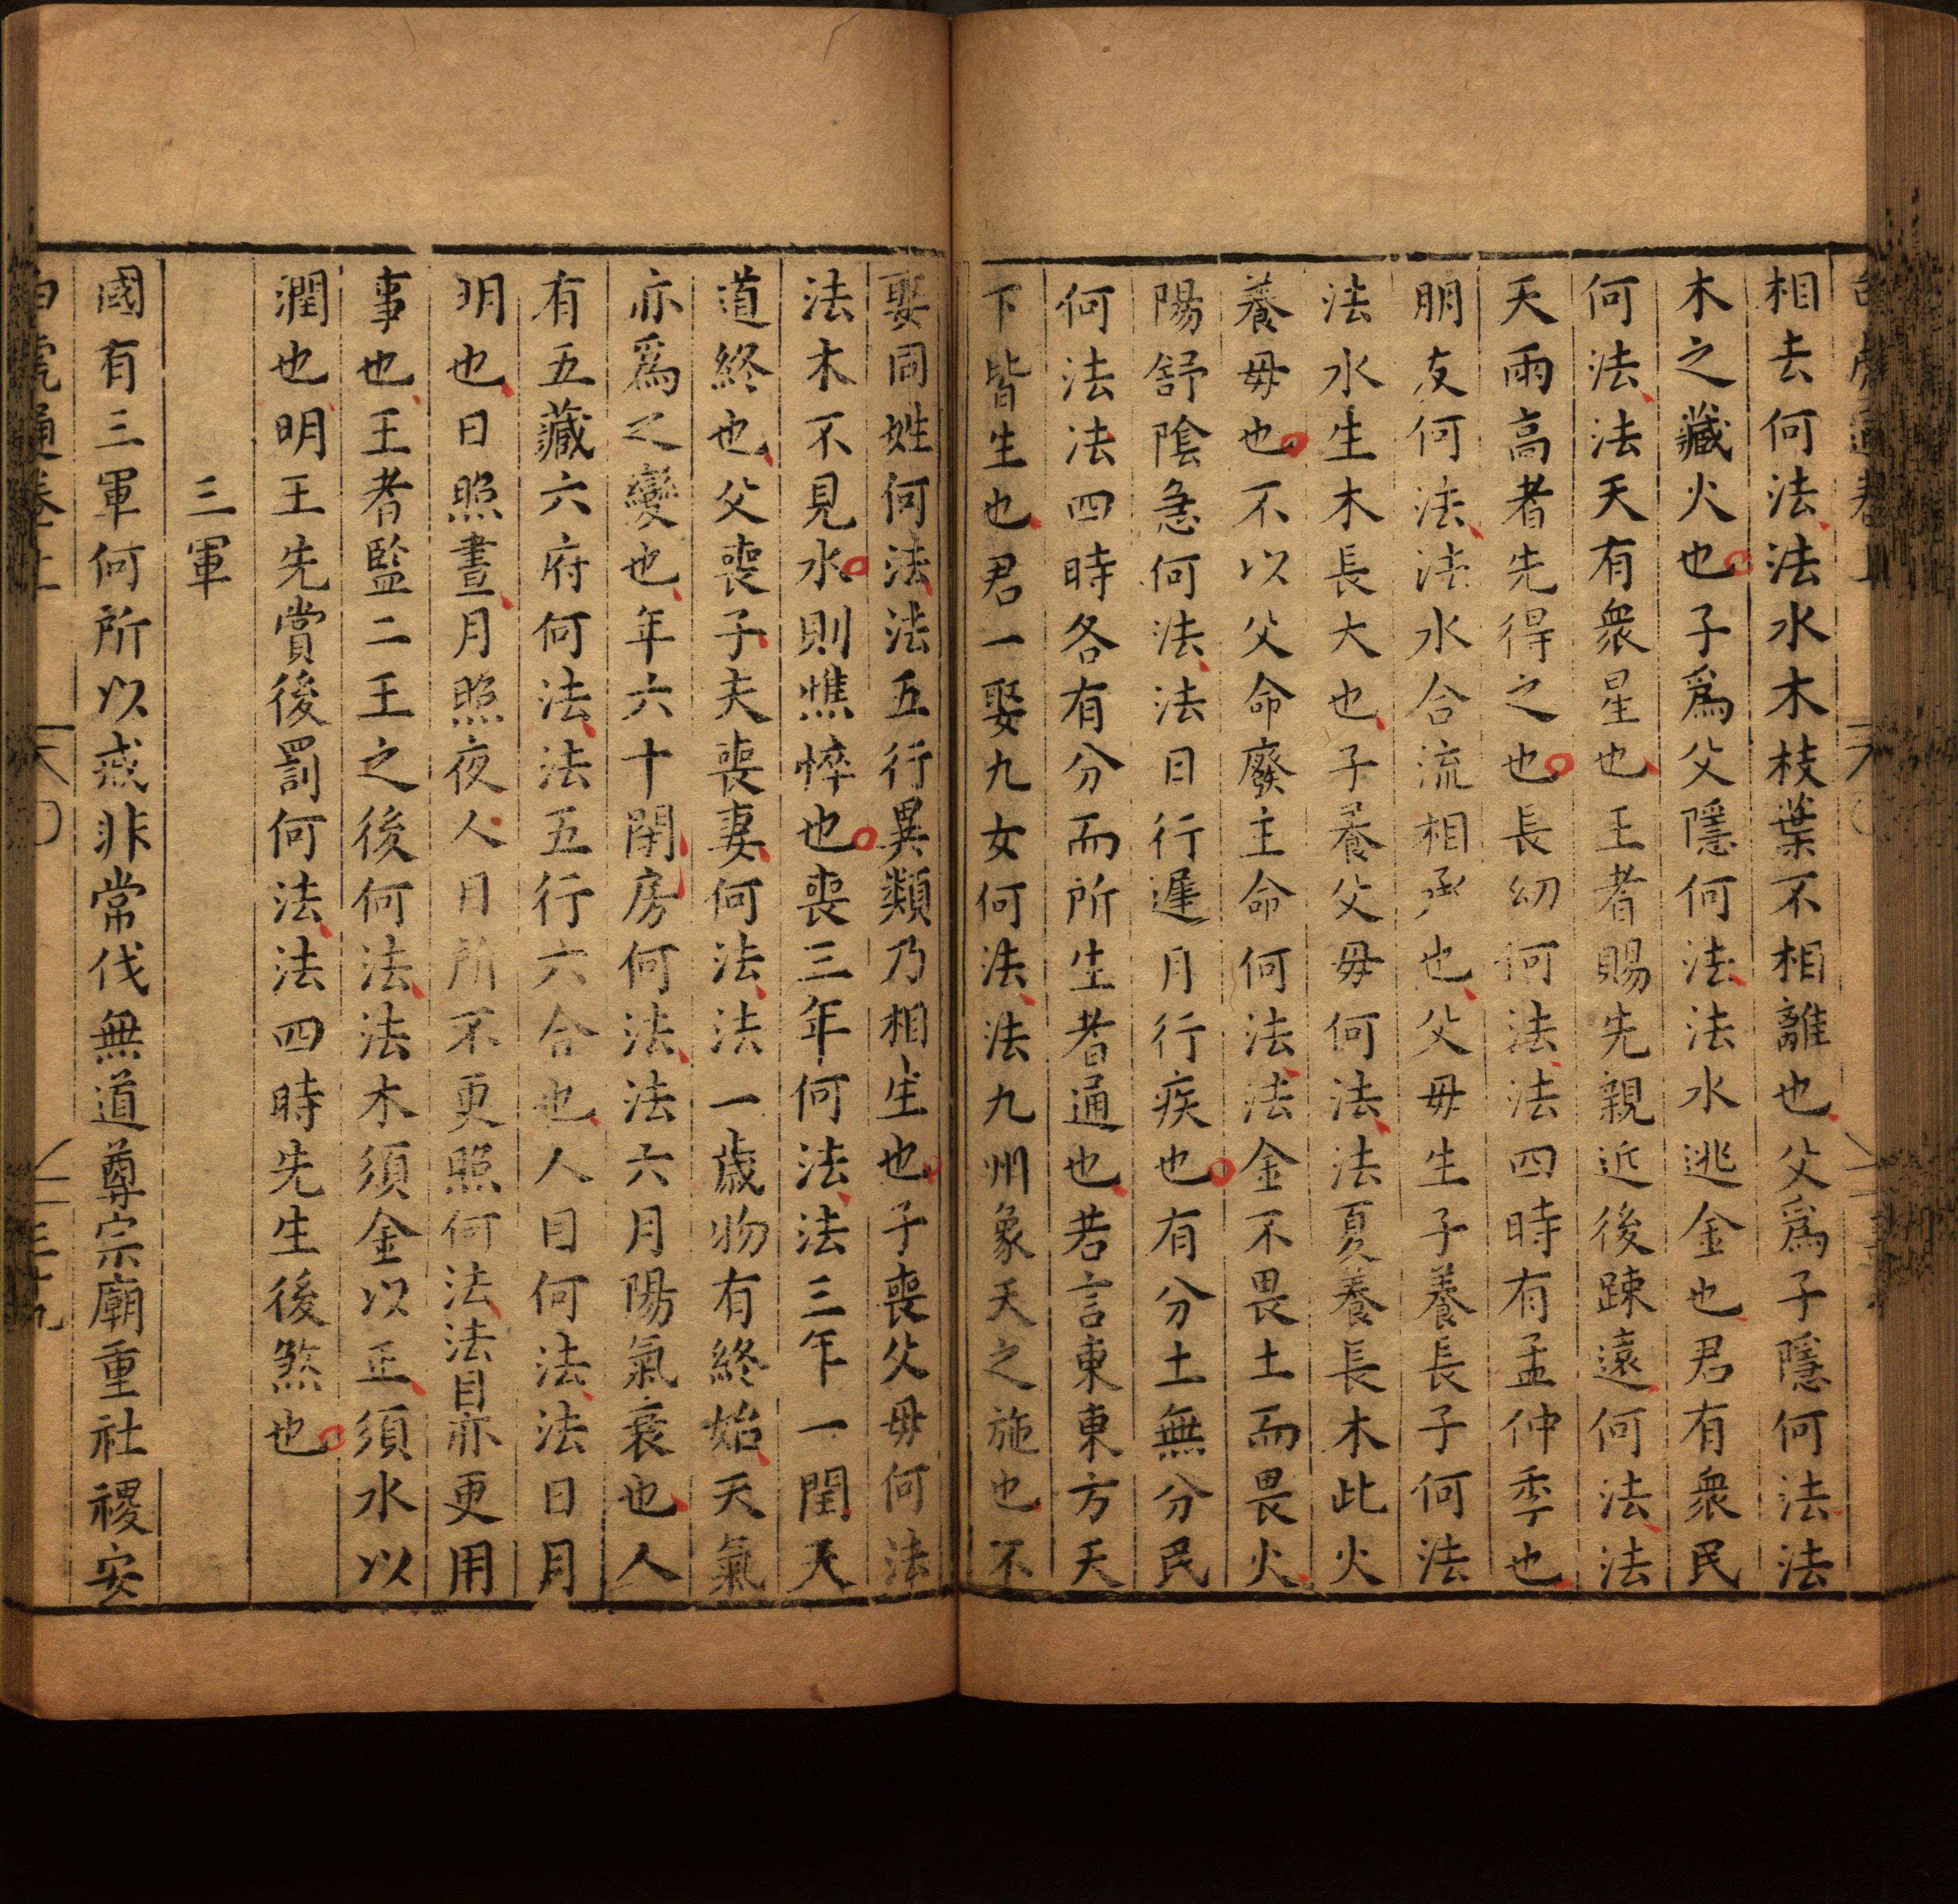 相去何法法水木枝葉不相離也父爲子隱何法法
木之藏火也子爲父隱何法法水逃金也君有衆民
何法法天有衆星也王者賜先親近後踈遠何法法
天雨高者先得之也長幼何法法四時有孟仲季也
朋友何法法水合流相承也父母生子養長子何法
法水生木長大也子養父母何法法夏養長木此火
養母也不以父命廢主命何法法金不畏土而畏火
陽舒陰急何法法日行遲月行疾也有分土無分民
何法法四時各有分而所生者通也若言東東方天
下皆生也君一娶九女何法法九州象天之施也不
娶同姓何法法五行異類乃相生也子喪父母何法
法木不見水則憔悴也喪三年何法法三年一閏天
道終也父喪子夫喪妻何法法一歲物有終始天氣
亦爲之變也年六十閉房何法法六月陽氣衰也人
有五藏六府何法法五行六合也人目何法法日月
明也日照晝月照夜人目所不更照何法法目亦更用
事也王者監二王之後何法法木須金以正須水以
潤也明王先賞後罰何法法四時先生後煞也
三軍
國有三軍何所以戒非常伐無道尊宗廟重社稷安
白虎通卷上
三十九